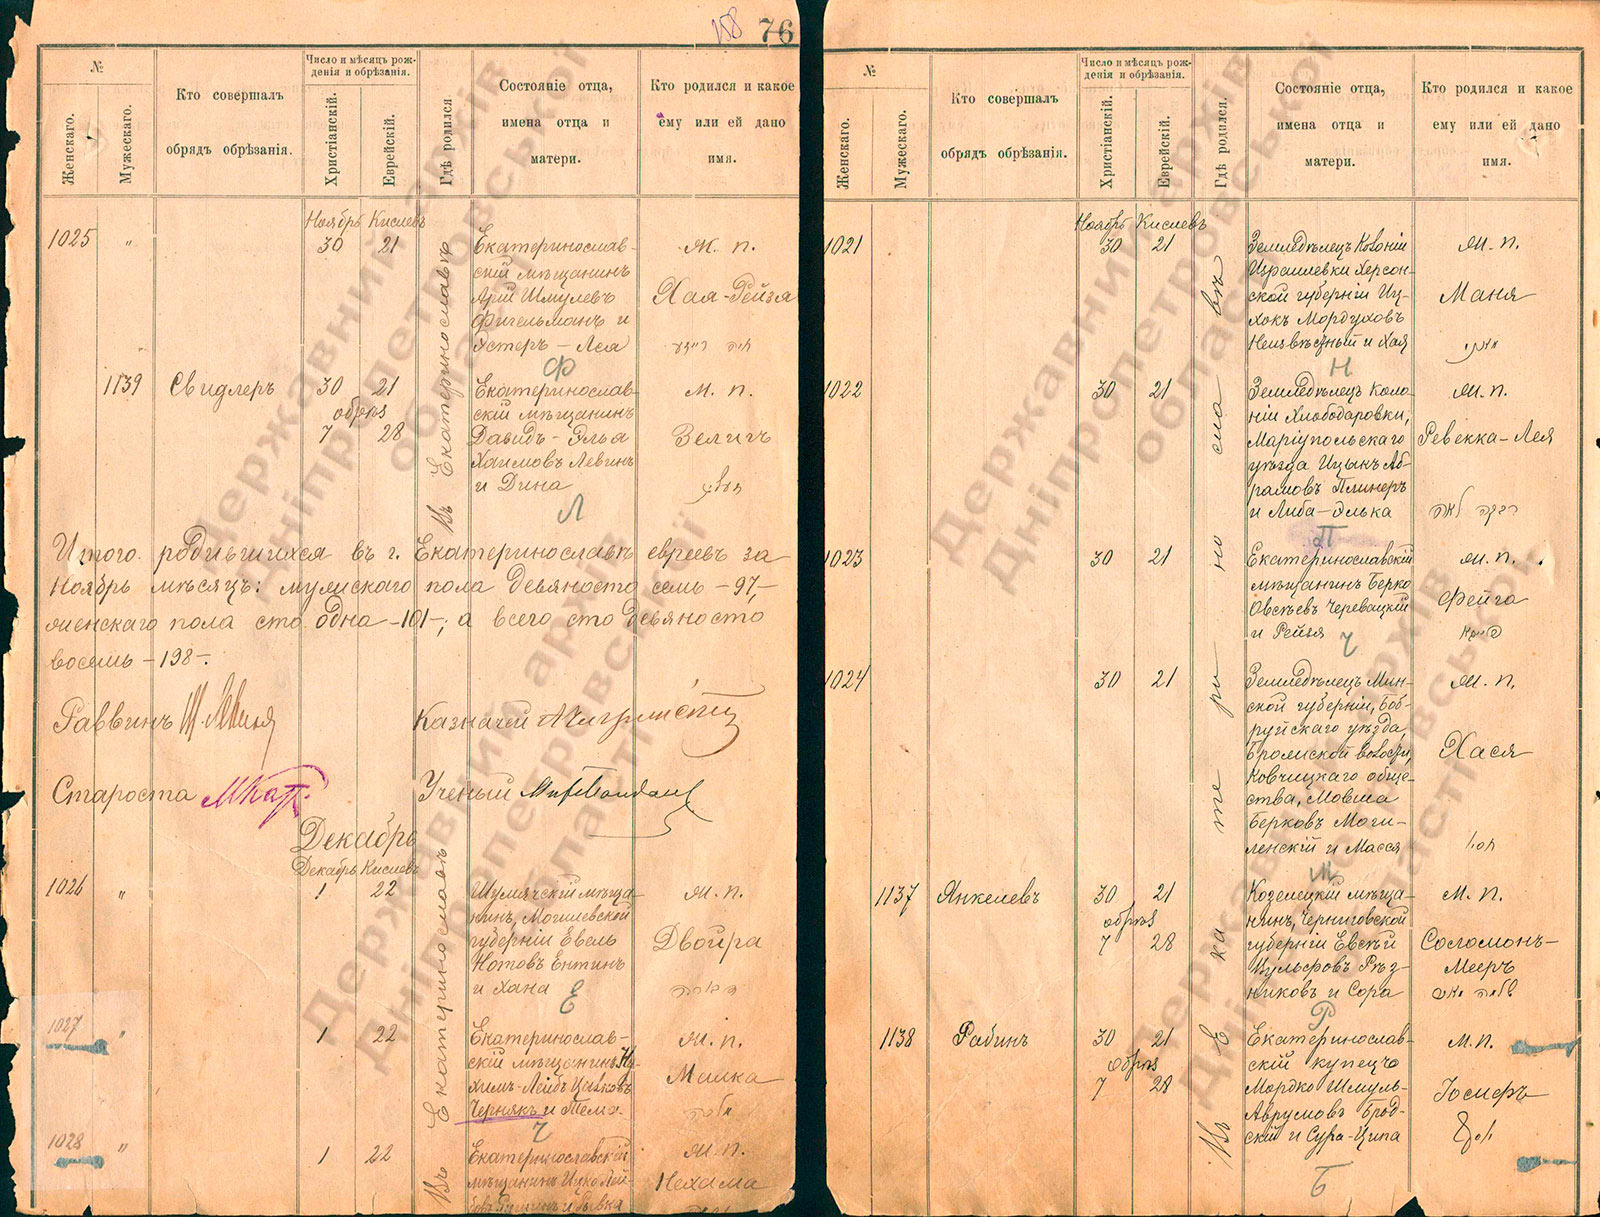 158 76
№
Женскаго.
Мужескаго.
Кто совершалъ
обрядъ обрѣзанія.
Число и мѣсяцъ рож-
денія и обрѣзанія.
Христіанскій.
Еврейскій.
Гдѣ родился
Состояніе отца,
имена отца и
матери.
Кто родился и какое
ему или ей дано
имя.
Ноябрь Кислевъ
1025 " 30 21
Въ Екатеринославѣ
Екатеринослав-
скій мѣщанинъ
Арій Шмулевъ
Фигельманъ и
Эстеръ-Лея
Ф
ж. п.
Хая-Рейзя
חיה רייזע
1139 Свидлеръ 30 21
обрѣз
7 28
Екатеринослав-
скій мѣщанинъ
Давидъ-Элья
Хаимовъ Левинъ
и Дина
Л
м. п.
Зеличъ
Итого родившихся въ г. Екатеринославѣ евреевъ за
Ноябрь мѣсяцъ: мужскаго пола девяносто семь -97-,
женскаго пола сто одна -101-; а всего сто девяносто
восемь -198-.
Раввинъ Казначей
Староста Ученый
Декабрь
Декабрь Кислевъ
1026 " 1 22
Въ Екатеринославѣ
Шумячскій мѣща-
нинъ, Могилевской
губерніи Евель
Нотовъ Ентинъ
и Хана
Е
ж. п.
Двойра
דבורה
1027 " 1 22
Екатеринослав-
скій мѣщанинъ Ну-
химъ-Лейбъ
Чернякъ и Тема
Ч
ж. п.
Малка
מלכה
1028 " 1 22
Екатеринославскій
мѣщанинъ Ицко Лей-
ж. п.
Нехама
№
Женскаго.
Мужескаго.
Кто совершалъ
обрядъ обрѣзанія.
Число и мѣсяцъ рож-
денія и обрѣзанія.
Христіанскій.
Еврейскій.
Гдѣ родился.
Состояніе отца,
имена отца и
матери.
Кто родился и какое
ему или ей дано
имя.
Ноябрь Кислевъ
1021 30 21
Въ Екатеринославѣ
Земледѣлецъ Колоніи
Израилевки Херсон-
ской губерніи Иц-
хокъ Мордуховъ
Неизвѣстный и Хая
Н
ж. п.
Маня
מאני
1022 30 21
Земледѣлецъ Коло-
ніи Хлѣбодаровки,
Маріупольскаго
уѣзда Ицыкъ Аб-
рамовъ Плинеръ
и Либа-Элька
П
ж. п.
Ревекка-Лея
רבקה לאה
1023 30 21
Екатеринославскій
мѣщанинъ Берко
Овсѣевъ Черевацкій
и Рейзя
Ч
ж. п.
Фейга
פייגא
1024 30 21
Земледѣлецъ Мин-
ской губерніи, Боб-
руйскаго уѣзда,
Брожской волости,
Ковчицкаго обще-
ства, Мовша
Берковъ Моги-
ленскій и Масся
М
ж. п.
Хася
חסי
1137 Янкелевъ 30 21
обрѣз
7 28
Козелецкій мѣща-
нинъ, Черниговской
губерніи Евсѣй
Вульфовъ Рѣз-
никовъ и Сора
Р
м. п.
Соломонъ-
Мееръ
שלמה מאיר
1138 Рабинъ 30 21
обрѣз
7 28
Екатеринослав-
скій купецъ
Мордко Шмуль-
Аврумовъ Брод-
скій и Сура-Ципа
Б
м. п.
Іосифъ
יוסף
Державний архів
Дніпропетровської
області